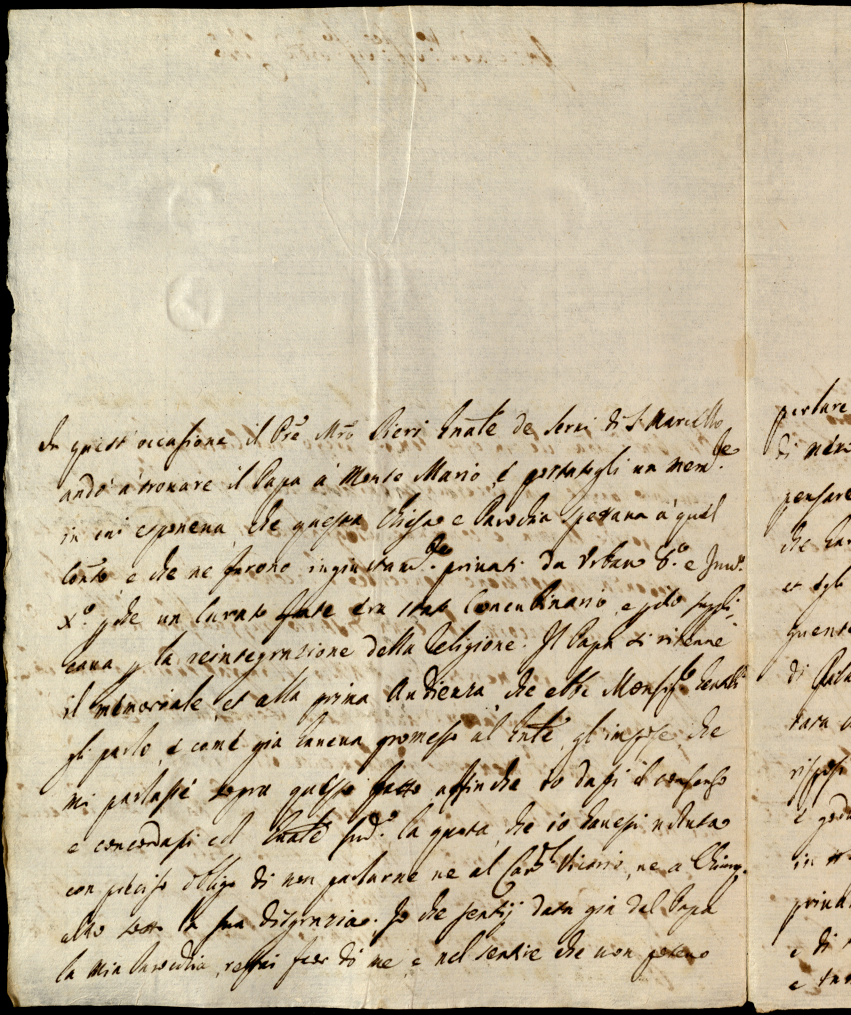 In quest'occasione il Pre Mro Pieri Frate de Servi di S. Marcello
andò a trovare il Papa à Monte Mario, e portatogli un mem.le
in cui esponeva, che questa Chiesa e Parochia spettava à quel
Conto, e che ne furono ingiustam.te privati da Urbano 8.o e Inno.
X.o che un Curato era stato Concubinario, e suppli-
cava la reintegrazione della Religione. Il Papa si ritenne
il memoriale, et alla prima Audienza, che ebbe Monsig.r
gli parlò, e come già haveva promesso al frate, gl'impose che
mi parlasse sopra questo fatto affinche io dassi il consenso
e concordassi col frate sud.o la quota, che io havessi voluta
con preciso obligo di non parlarne ne al Car.l Vicario, ne a
altro sotto la sua disgrazia. Io che sentij data già dal Papa
la mia Parochia, restai fuor di me, e nel sentire che non potevo
perlare
di
pensare
che
et egli
quente
di
tara
risposi
e
in
priva
e di
e